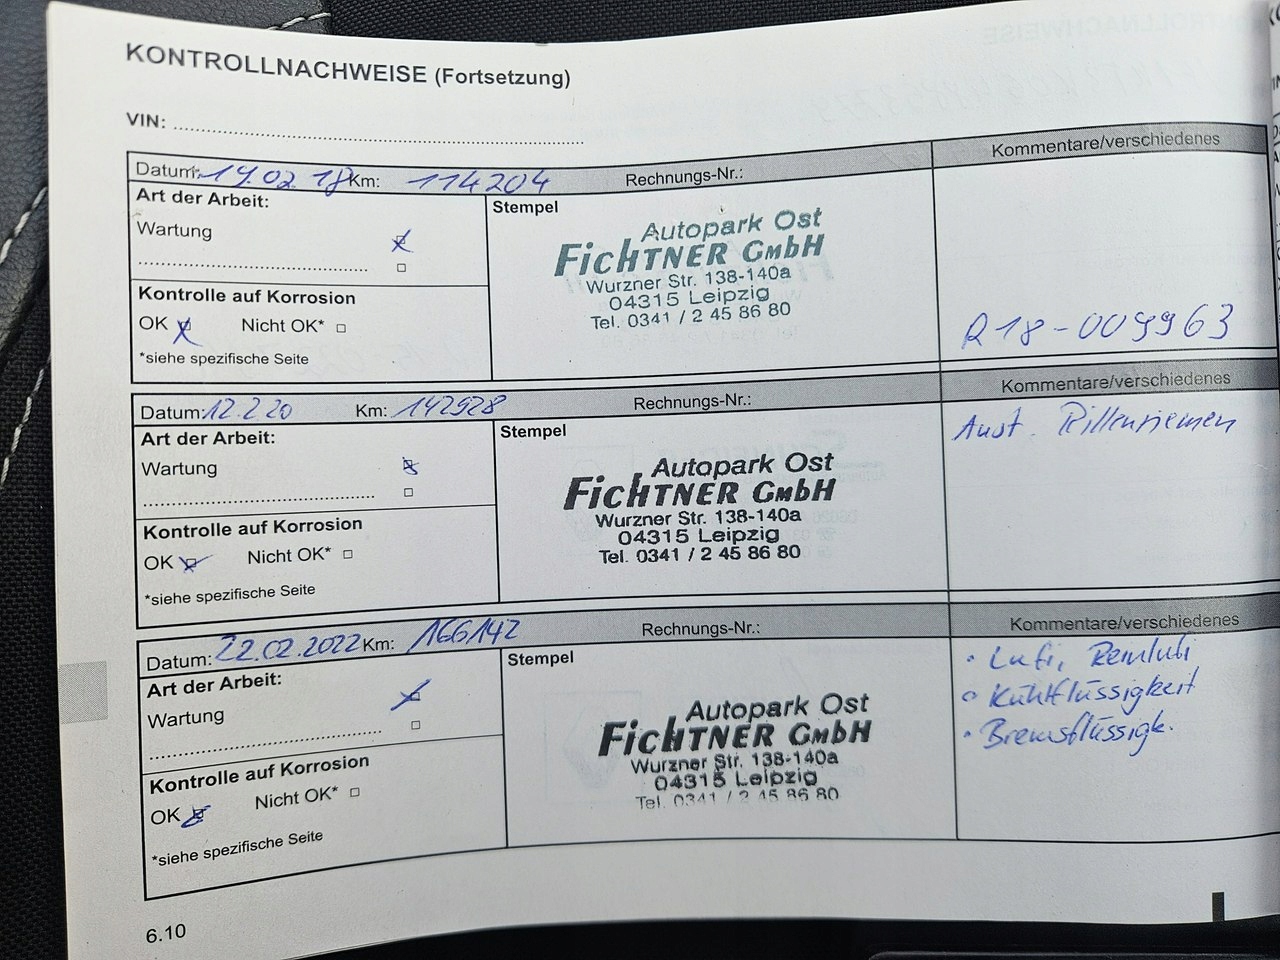 KONTROLLNACHWEISE (Fortsetzung)
VIN:
Datum: 19.02 18 Km: 114204 Rechnungs-Nr.: Kommentare/verschiedenes
Art der Arbeit:
Wartung
Stempel
Autopark Ost
FICHTNER GMBH
Wurzner Str. 138-140a
04315 Leipzig
Tel. 0341 / 2 45 86 80
Kontrolle auf Korrosion
OK Nicht OK*
*siehe spezifische Seite
R18-009963
Datum: 12.2.20 Km: 142928 Rechnungs-Nr.: Kommentare/verschiedenes
Art der Arbeit:
Wartung
Stempel
Autopark Ost
FICHTNER GMBH
Wurzner Str. 138-140a
04315 Leipzig
Tel. 0341 / 2 45 86 80
Kontrolle auf Korrosion
OK Nicht OK*
*siehe spezifische Seite
Aust. Rillenriemen
Datum: 22.02.2022 Km: 166142 Rechnungs-Nr.: Kommentare/verschiedenes
Art der Arbeit:
Wartung
Stempel
Autopark Ost
FICHTNER GMBH
Wurzner Str. 138-140a
04315 Leipzig
Tel. 0341 / 2 45 86 80
Kontrolle auf Korrosion
OK Nicht OK*
*siehe spezifische Seite
• Lufi, Reinlufi
• Kühlflüssigkeit
• Bremsflüssigk.
6.10